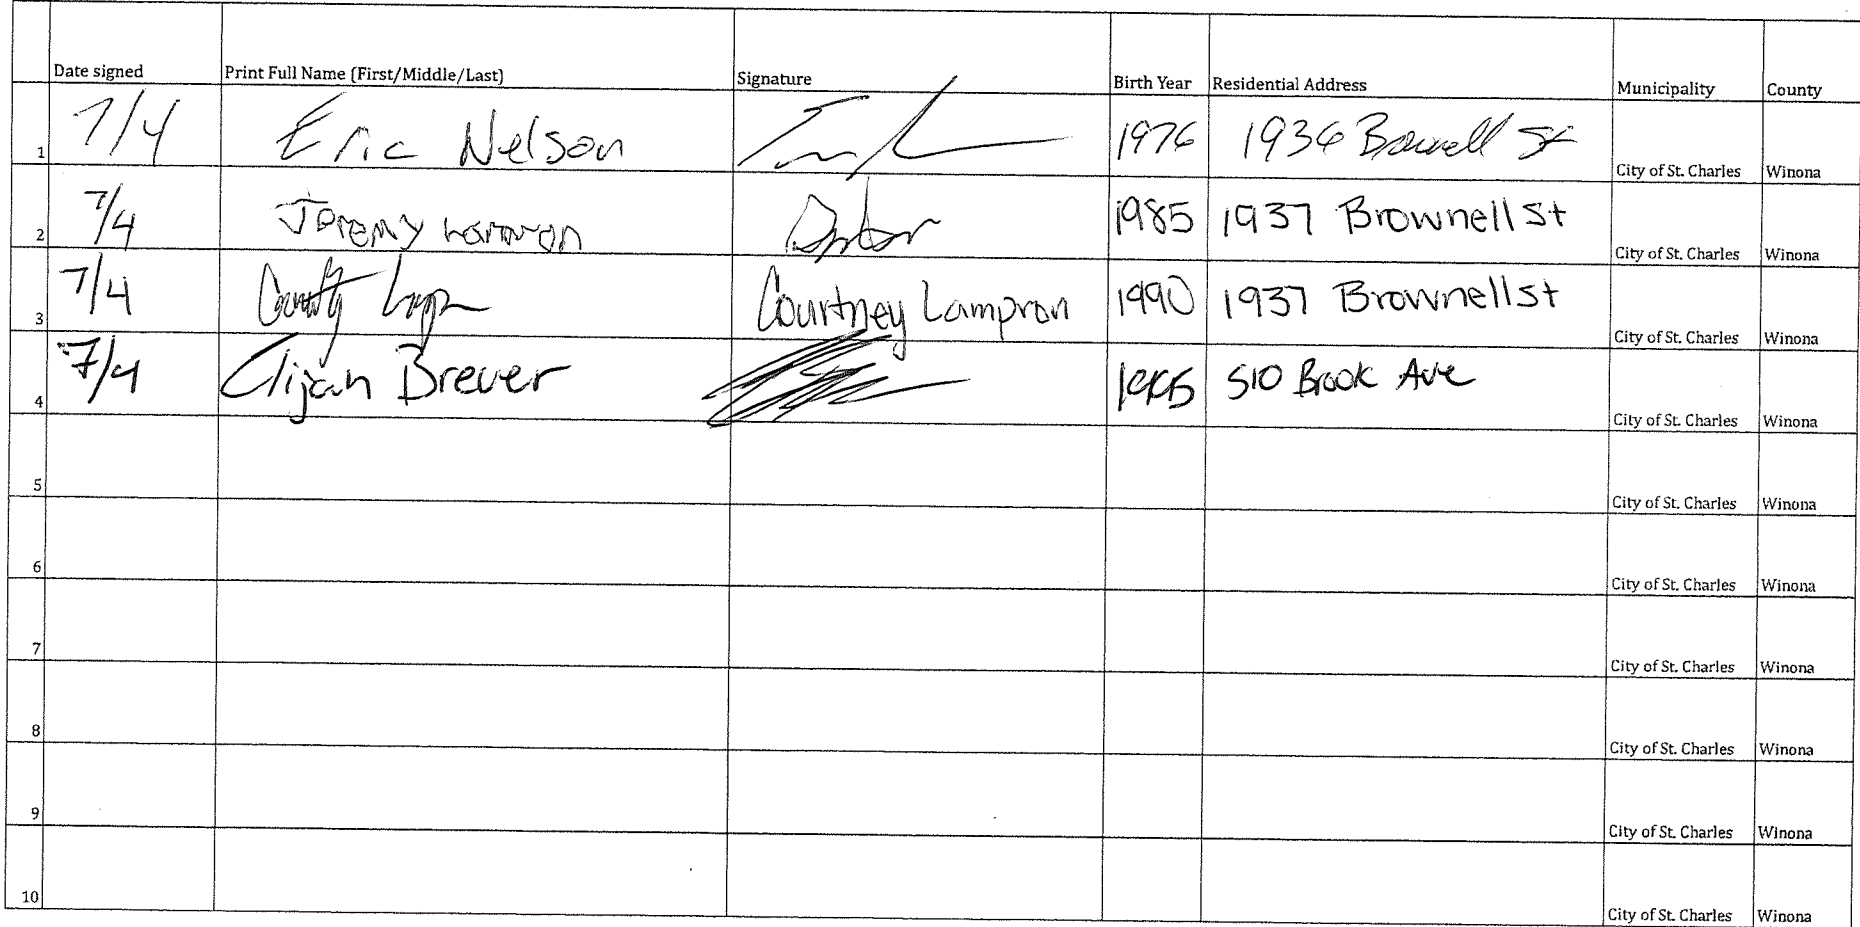 Date signed Print Full Name (First/Middle/Last) Signature Birth Year Residential Address Municipality County
1 7/4 Eric Nelson 1976 1936 St City of St. Charles Winona
2 7/4 Jeremy 1985 1937 Brownell St City of St. Charles Winona
3 7/4 Courtney Lampron 1990 1937 Brownell St City of St. Charles Winona
4 7/4 Elijah Brever 510 Brook Ave City of St. Charles Winona
5 City of St. Charles Winona
6 City of St. Charles Winona
7 City of St. Charles Winona
8 City of St. Charles Winona
9 City of St. Charles Winona
10 City of St. Charles Winona